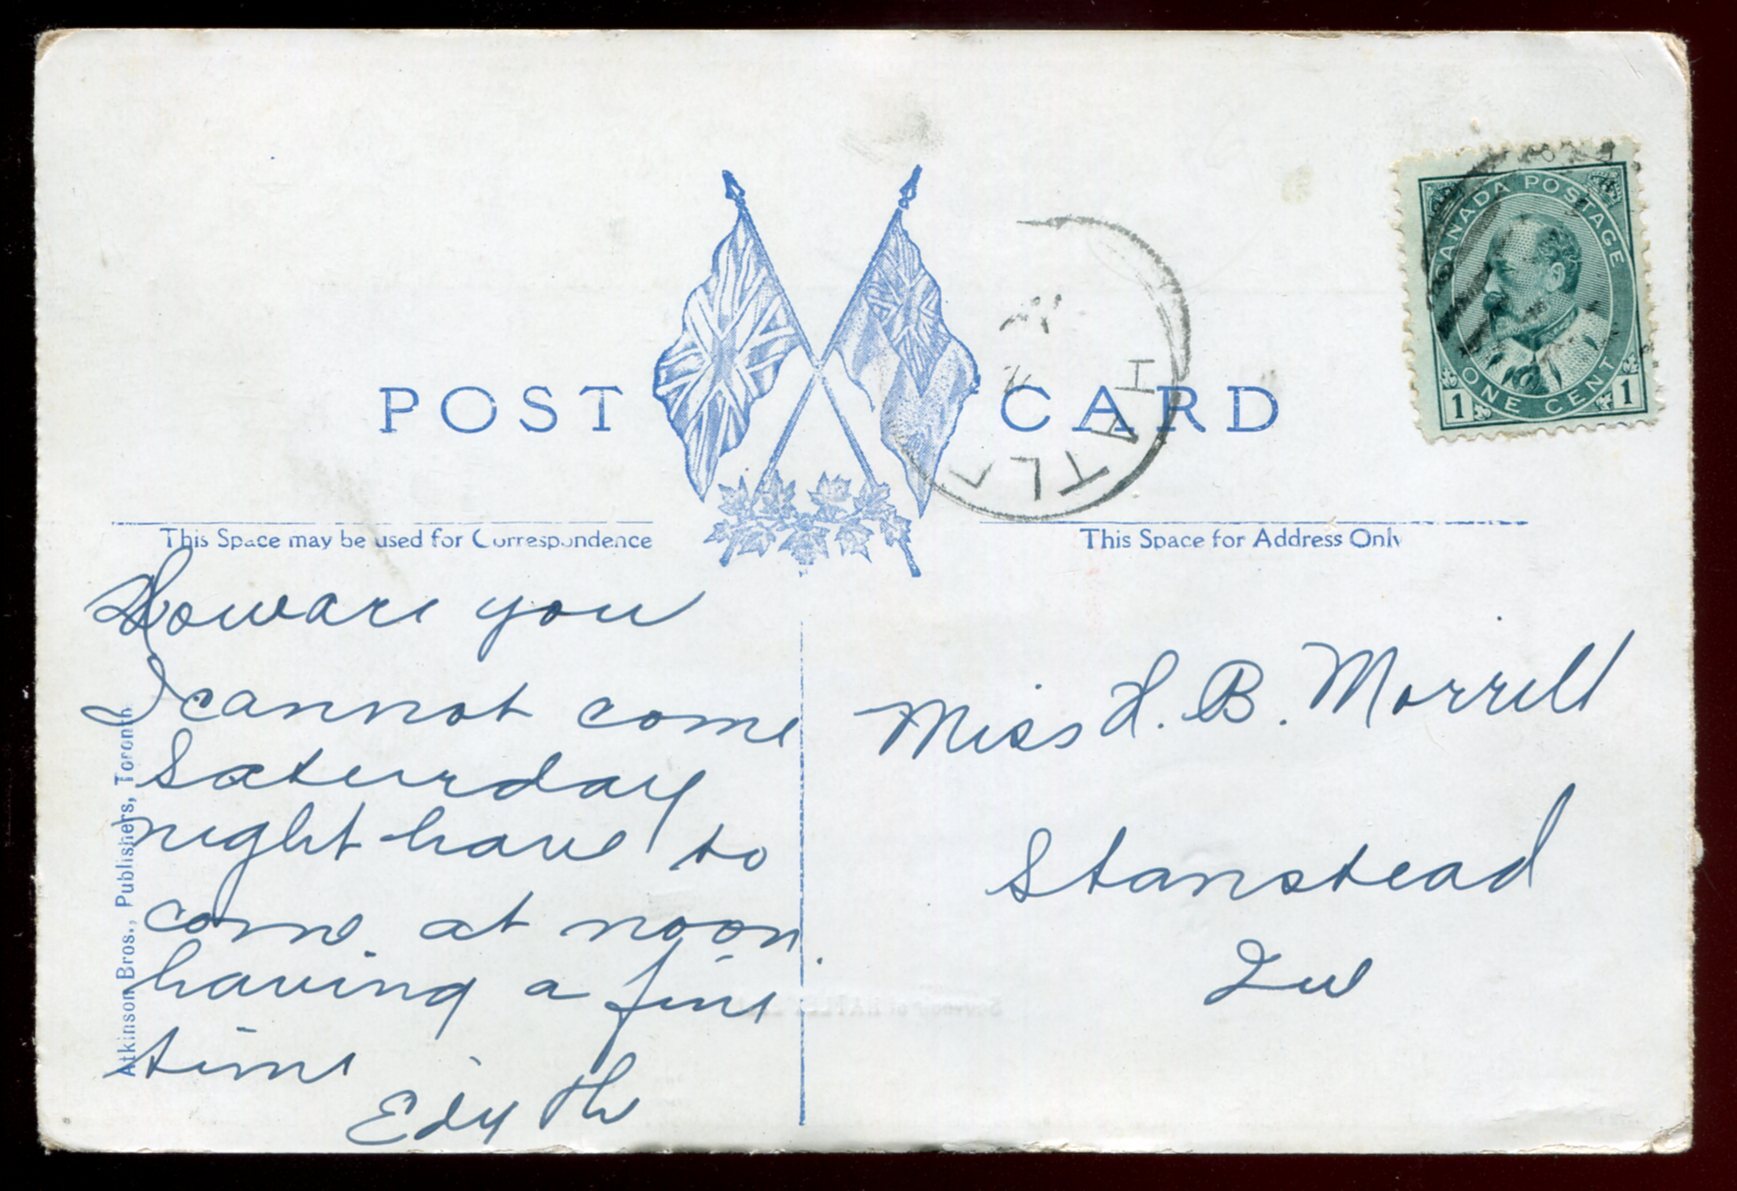 CANADA POSTAGE
1 ONE CENT 1
POST CARD
HATL
This Space may be used for Correspondence
This Space for Address Only
How are you
I cannot come
Saturday
night have to
come at noon.
having a fine
time
Edyth
Miss H. B. Morrill
Stanstead
Que
Atkinson Bros., Publishers, Toronto